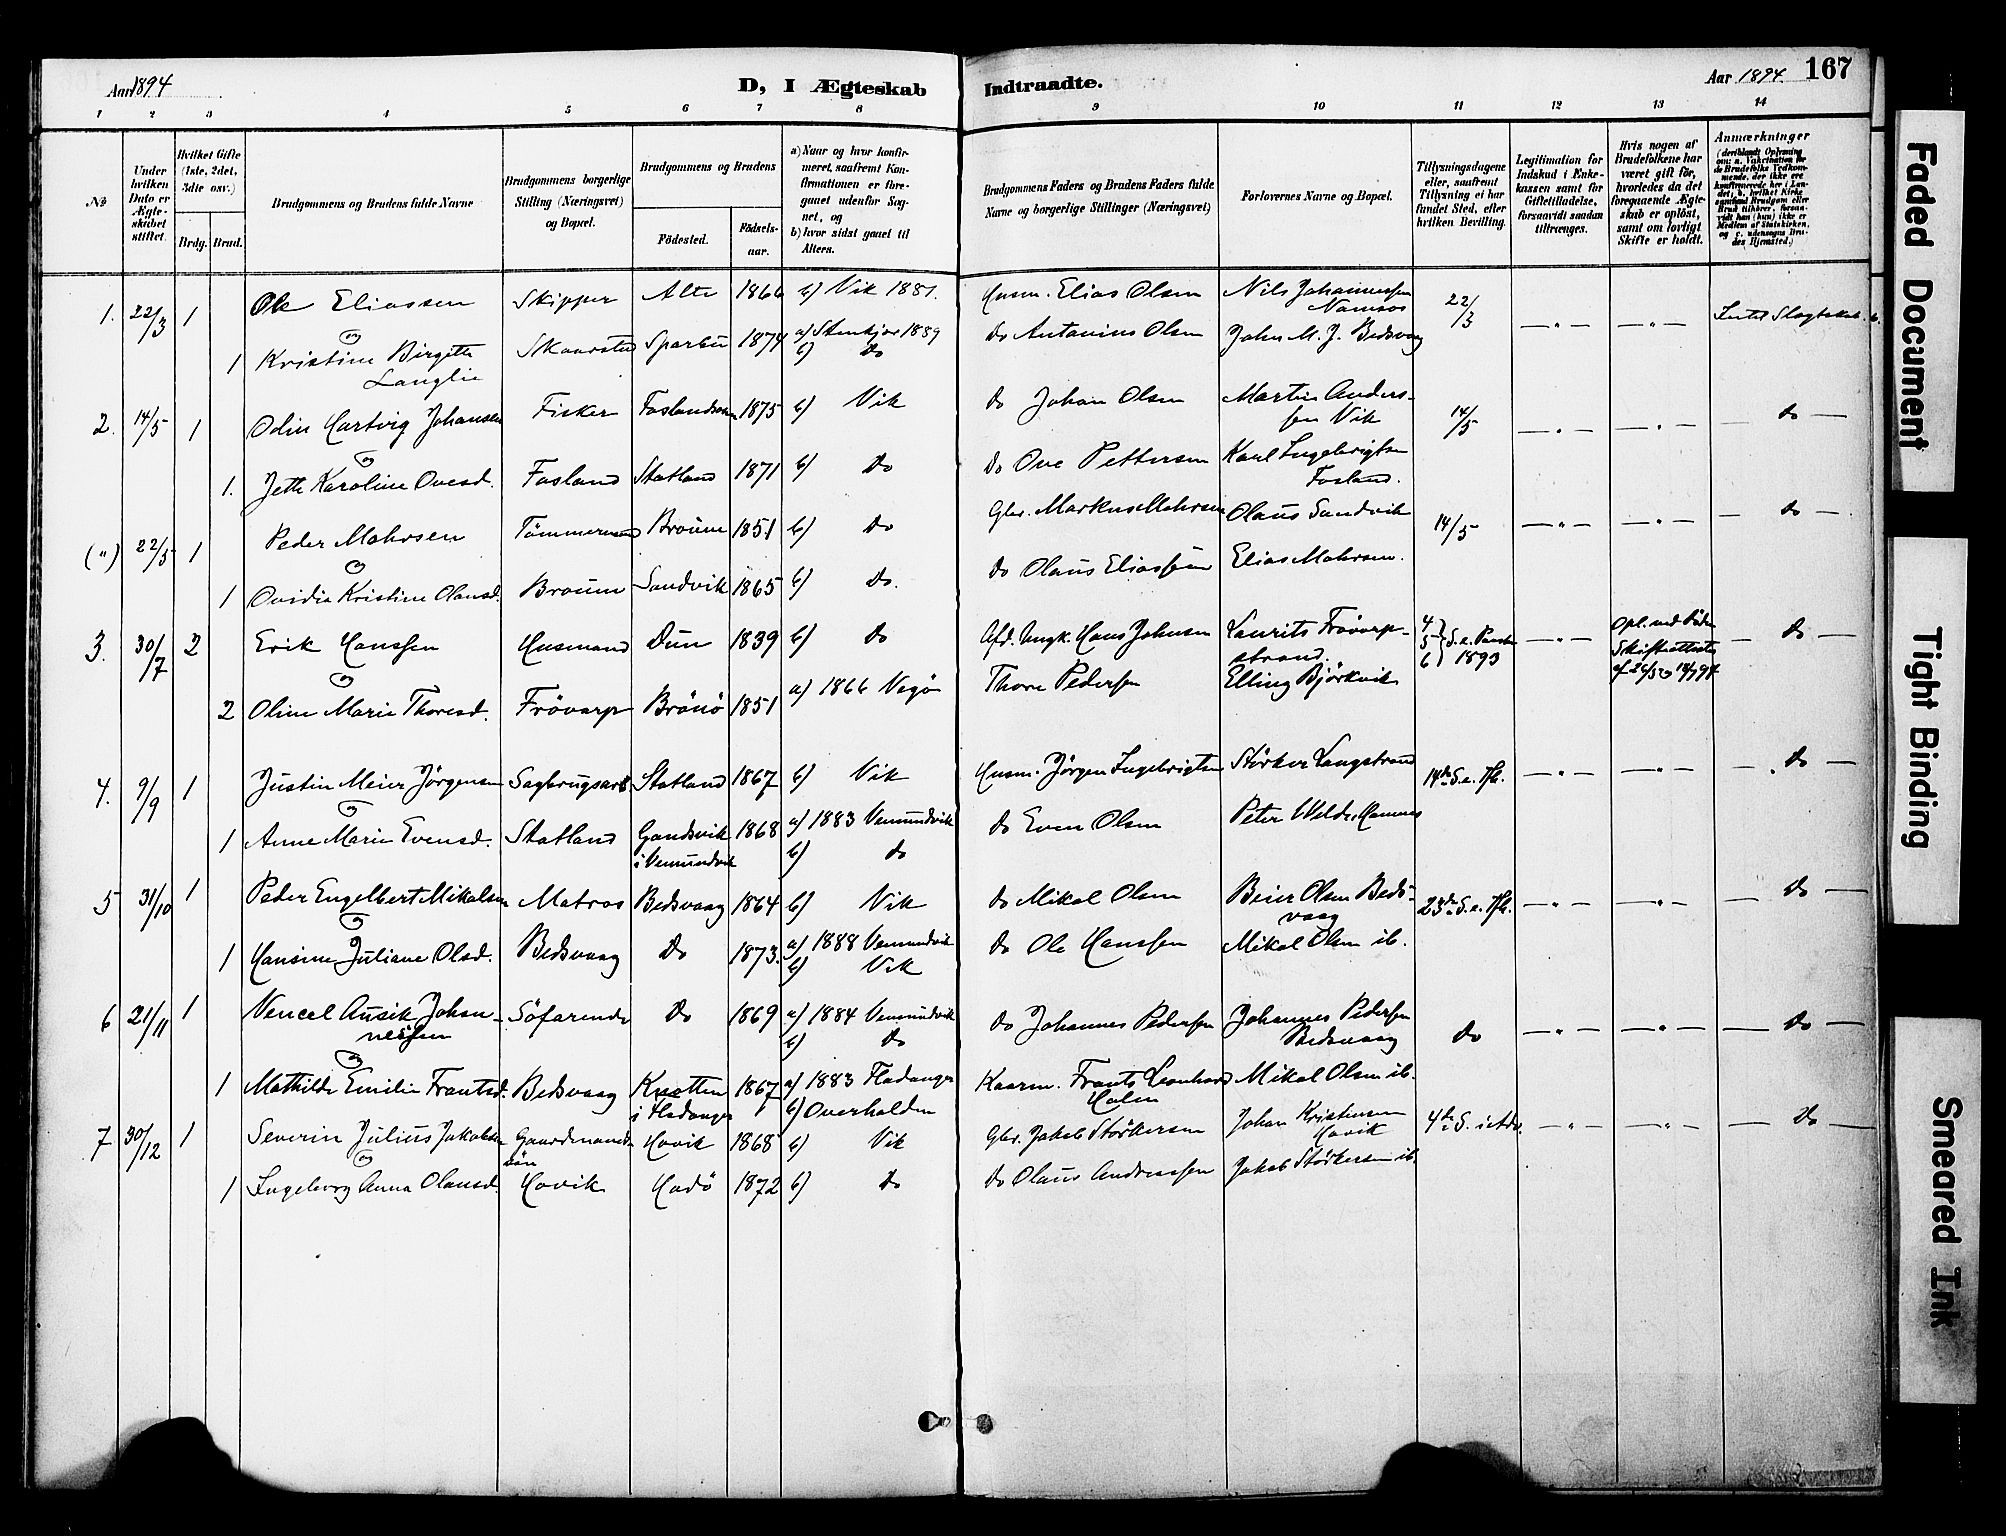 Aar 1894
D, I Ægteskab Indtraadte.
Aar 1894
167
1 2 3 4 5 6 7 8 9 10 11 12 13 14
No
Under hvilken Dato er Ægteskabet stiftet.
Hvilket Gifte (1ste, 2det, 3die osv.)
Brdg. Brud.
Brudgommens og Brudens fulde Navne
Brudgommens borgerlige Stilling (Næringsvei) og Bopæl.
Brudgommens og Brudens
Fødested.
Fødselsaar.
a) Naar og hvor konfirmeret, saafremt Konfirmationen er foregaaet udenfor Sognet, og
b) hvor sidst gaaet til Alters.
Brudgommens Faders og Brudens Faders fulde Navne og borgerlige Stillinger (Næringsvei)
Forlovernes Navne og Bopæl.
Tillysningsdagene eller, saafremt Tillysning ei har fundet Sted, efter hvilken Bevilling.
Legitimation for Indskud i Enkekassen samt for Giftetilladelse, forsaavidt saadan tiltrænges.
Hvis nogen af Brudefolkene har været gift før, hvorledes da det foregaaende Ægteskab er opløst, samt om lovligt Skifte er holdt.
Anmærkninger
1. 22/3 1 Ole Eliassen Skipper Alte 1866 b) Vik 1881. Husm. Elias Olsen Nils Johannessen Namsos 22/3
og
1 Kristine Birgitte Langlie Sparbu 1874 a) Stenkjær 1889 b) Do Do Antonius Olsen John M. J. Bedsvaag
2. 14/5 1 Odin Hartvig Johansen Fisker 1875 b) Vik Do Johan Olsen Martin Anderssen Vik 14/5 Do
og
1. Jette Karoline Ovesd. Fosland Statland 1871 b) Do Do Ove Pettersen Karl Ingebrigtsen Fosland.
(") 22/5 1 Peder Mohrsen Tømmermand Braum 1851 b) Do Gbr. Markus Mohrsen Olaus Sandvik 14/5 Do
og
1 Ovidia Kristine Olausd. Braum Sandvik 1865 b) Do. Do Olaus Eliassen Elias Mohrsen.
3. 30/7 2 Erik Hanssen Husmand Dun 1839 b) Do Hans Johnsen Laurits Frøvarpstrand. 4 5 6 1893 Do
og
2 Oline Marie Thoresd. Frøvarp Brønø 1851 a) 1866 Vegø Thore Pedersen Elling Bjørkvik
4. 9/9 1 Justin Meier Jørgensen Sagbrugsarb. Statland 1867 b) Vik Husm. Jørgen Ingebrigtsen Størker Langstrand 14de S. e. Tfh. Do
og
1 Anne Marie Evensd. Statland Gandsvik i Vemundvik 1868 a) 1883 Vemundvik b) Do Do Even Olsen Peter Welde, Hamnes
5 31/10 1 Peder Engelbert Mikalsen Matros Bedsvaag 1864 b) Vik Do Mikal Olsen Beier Olsen Bedsvaag 23de S. e. Tfh. Do
og
1 Hansine Juliane Olsd. Bedsvaag Do 1873. a) 1888 Vemundvik b) Vik Do Ole Hanssen Mikal Olsen ib.
6 21/11 1 Vencel Ausik Johannessen Søfarende Do 1869 a) 1884 Vemundvik b) Do Do Johannes Pedersen Johannes Pedersen Bedsvaag Do Do
og
1 Mathilde Emilie Frantsd. Bedsvaag Knotten i Fladanger 1867 a) 1883 Fladanger b) Overhalden Kaarm. Frants Leonhard Holm Mikal Olsen ib.
7 30/12 1 Severin Julius Jakobsen Gaardmandssøn Hovik 1868 b) Vik Gbr. Jakob Størkersen Johan Kristensen Hovik 4de S. i Adv. Do
og
1 Ingeborg Anna Olausd. Hovik Hodø 1872 b) Do Do Olaus Andreassen Jakob Størkersen ib.
Faded Document
Tight Binding
Smeared Ink